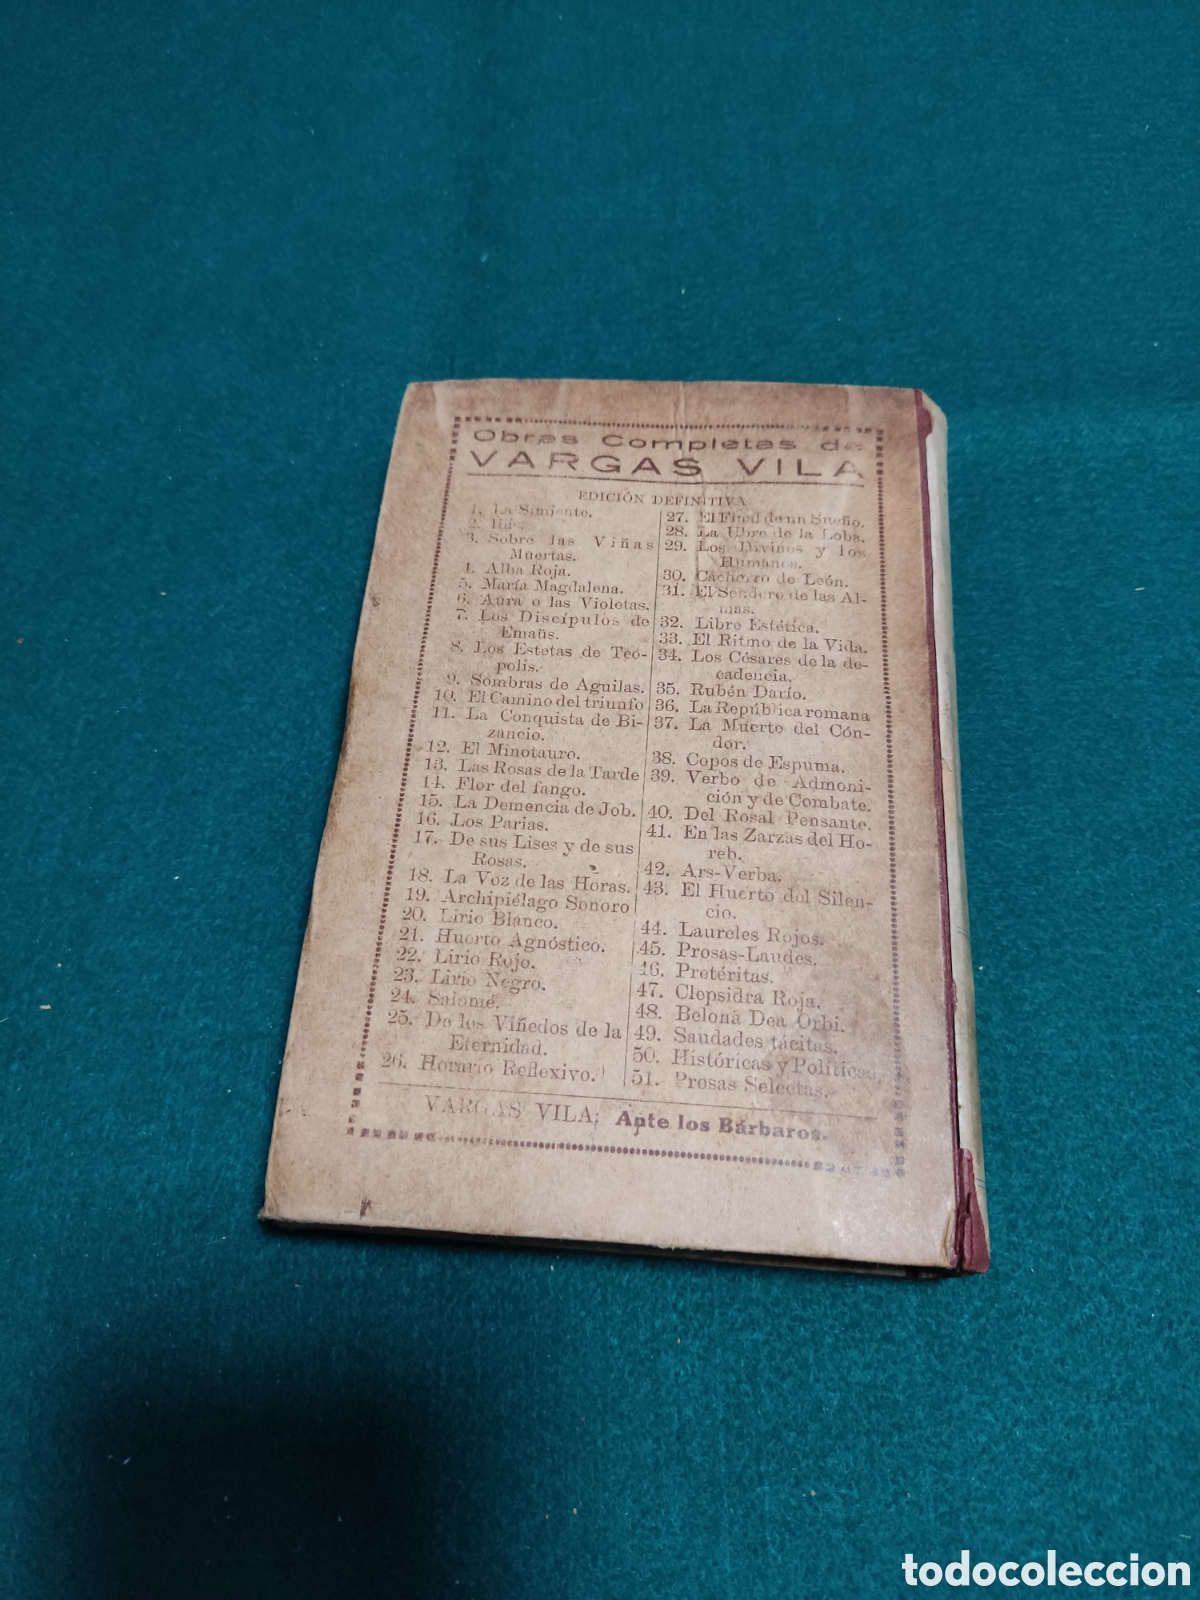 Obras Completas de
VARGAS VILA
EDICIÓN DEFINITIVA
1. La Simiente.
2. Ibis.
3. Sobre las Viñas
Muertas.
4. Alba Roja.
5. María Magdalena.
6. Aura o las Violetas.
7. Los Discípulos de
Emaüs.
8. Los Estetas de Teó-
polis.
9. Sombras de Aguilas.
10. El Camino del triunfo
11. La Conquista de Bi-
zancio.
12. El Minotauro.
13. Las Rosas de la Tarde
14. Flor del fango.
15. La Demencia de Job.
16. Los Parias.
17. De sus Lises y de sus
Rosas.
18. La Voz de las Horas.
19. Archipiélago Sonoro
20. Lirio Blanco.
21. Huerto Agnóstico.
22. Lirio Rojo.
23. Lirio Negro.
24. Salomé.
25. De los Viñedos de la
Eternidad.
26. Horario Reflexivo.
27. El Final de un Sueño.
28. La Ubre de la Loba.
29. Los Divinos y los
Humanos.
30. Cachorro de León.
31. El Sendero de las Al-
mas.
32. Libre Estética.
33. El Ritmo de la Vida.
34. Los Césares de la de-
cadencia.
35. Rubén Darío.
36. La República romana
37. La Muerte del Cón-
dor.
38. Copos de Espuma.
39. Verbo de Admoni-
ción y de Combate.
40. Del Rosal Pensante.
41. En las Zarzas del Ho-
reb.
42. Ars-Verba.
43. El Huerto del Silen-
cio.
44. Laureles Rojos.
45. Prosas-Laudes.
46. Pretéritas.
47. Clepsidra Roja.
48. Belona Dea Orbi.
49. Saudades tácitas.
50. Históricas y Políticas.
51. Prosas Selectas.
VARGAS VILA: Ante los Bárbaros.
todocoleccion